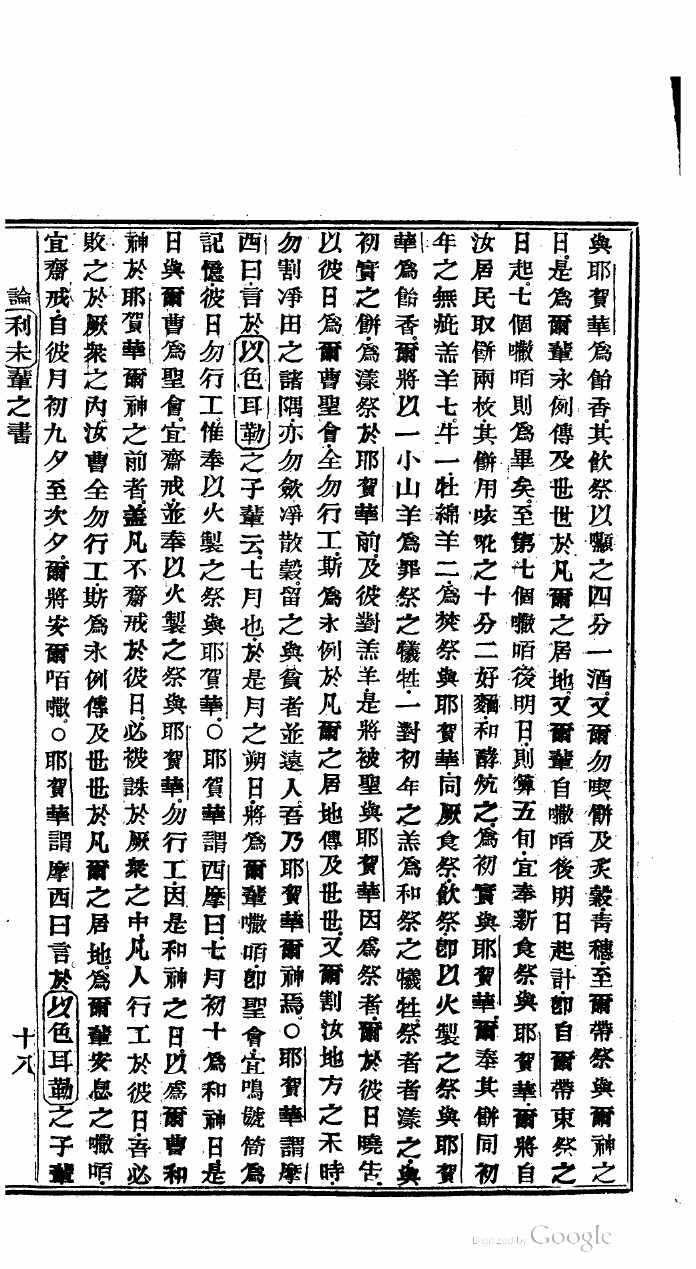 與耶賀華爲飴香.其飲祭以嚈之四分一酒.又爾勿喫餅及炙穀.靑穗.至爾帶祭與爾神之
日.是爲爾輩永例傳及世世於凡爾之居地.又爾輩自嚈咟後明日起計.卽自爾帶束祭之
日起.七個嚈咟則爲畢矣.至第七個嚈咟後明日.則算五旬.宜奉新食祭與耶賀華.爾將自
汝居民取餅兩枚.其餅用咦吡之十分二好麵.和酵炕之.爲初實與耶賀華.爾奉其餅同初
年之無疵羔羊七.牛一.牡綿羊二.爲焚祭與耶賀華.同厥食祭.飲祭.卽以火製之祭與耶賀
華爲飴香.爾將以一小山羊爲罪祭之犧牲.一對初年之羔爲和祭之犧牲.祭者者漾之.與
初實之餅.爲漾祭於耶賀華前.及彼對羔羊.是將被聖與耶賀華因爲祭者.爾於彼日曉告.
以彼日爲爾曹聖會.全勿行工.斯爲永例於凡爾之居地傳及世世.又爾割汝地方之禾時.
勿割凈田之諸隅.亦勿斂凈散穀.留之與貧者並遠人.吾乃耶賀華爾神焉.○耶賀華謂摩
西曰.言於以色耳勒之子輩云.七月也.於是月之朔日.將爲爾輩嚈咟.卽聖會.宜鳴號筒爲
記憶.彼日勿行工.惟奉以火製之祭與耶賀華.○耶賀華謂西摩曰.七月初十爲和神日.是
日與爾曹爲聖會.宜齋戒.並奉以火製之祭與耶賀華.勿行工.因是和神之日.以爲爾曹和
神於耶賀華爾神之前者.蓋凡不齋戒於彼日.必被誅於厥衆之中.凡人行工於彼日.吾必
敗之於厥衆之內.汝曹全勿行工.斯爲永例傳及世世於凡爾之居地.爲爾輩安息之嚈咟.
宜齋戒.自彼月初九夕至次夕.爾將安爾咟嚈.○耶賀華謂摩西曰.言於以色耳勒之子輩
論利未輩之書
十八
Digitized by Google